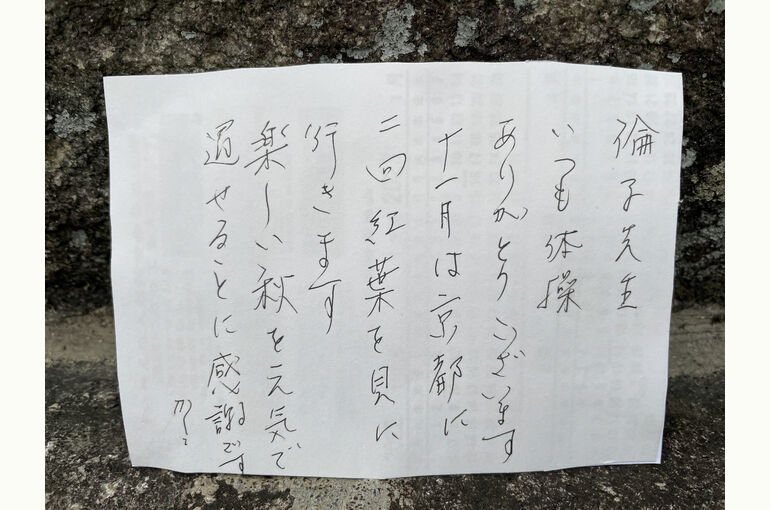 倫子先生
いつも体操
ありがとうございます
十一月は京都に
二回紅葉を見に
行きます
楽しい秋を元気で
過せることに感謝です